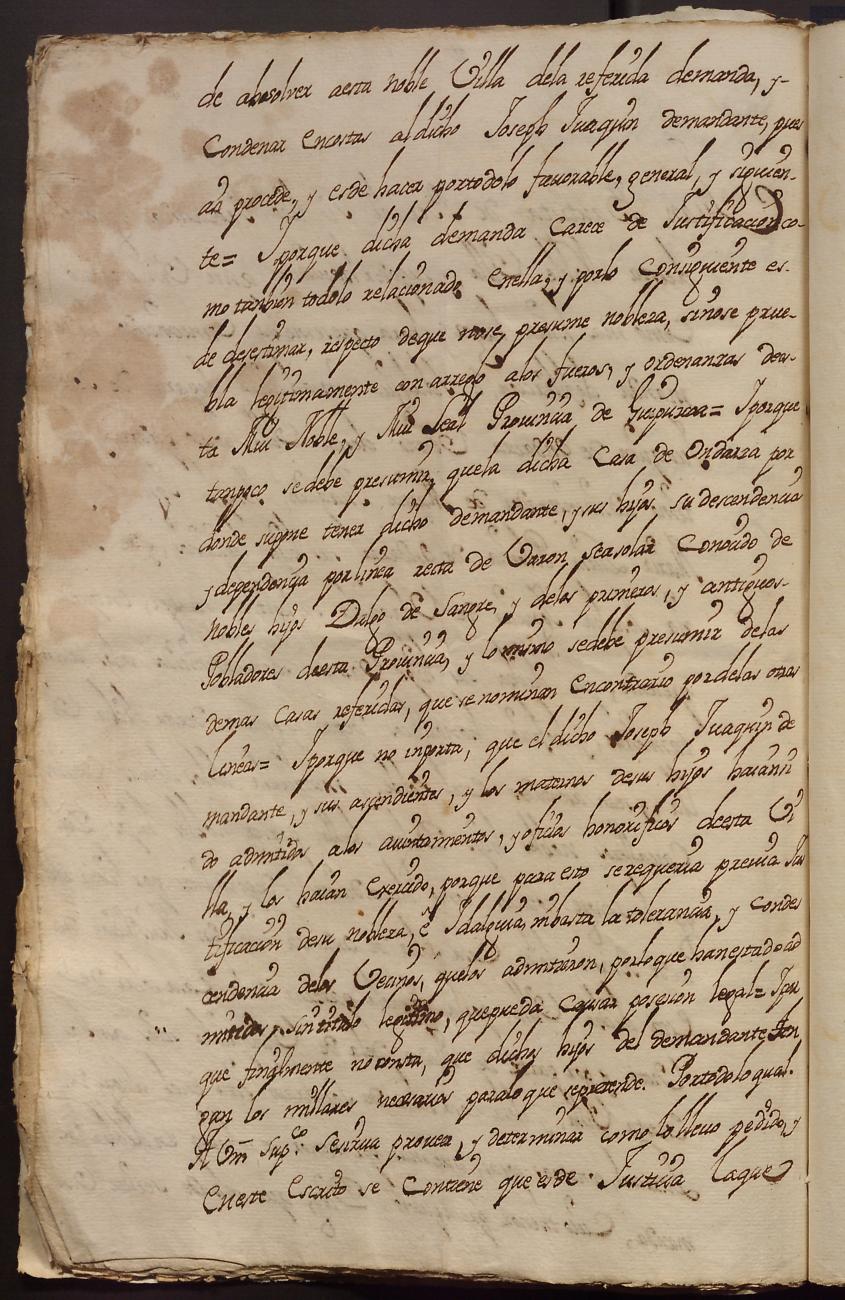 de absolver aesta noble Villa dela referida demanda, y
Condenar encostas aldicho Joseph Juaquin demandante, pues
asi procede, y esde hacer portodolo favorable, general, y siguien-
te= Yporque dicha demanda Carece de Justificacion co-
mo tambien todolo relacionado enella, y porlo Consiguiente es-
de desestimar, respecto deque nose presume nobleza, sinose prue-
bla legitimamente con arreglo alos fueros, y ordenanzas des-
ta Mui Noble, y Mui Leal Provincia de Guipuzcoa= Yporque
tanpoco sedebe presumir, quela dicha Casa de Ondarza por
donde supone tener dicho demandante, ysus hijos su descendencia
ydependencia porlinea recta de Varon, seasolar Conocido de
Nobles hijos Dalgo de Sangre, y delos primeros, y antiguos-
Pobladores deesta Provincia, y lo mismo sedebe presumir delas
demas Casas referidas, que senominan encontrario pordelas otras
lineas= Yporque no inporta, que el dicho Joseph Juaquin de
mandante, y sus ascendientes, y los maternos desus hijos haiansi
do admitidos alos aiuntamientos, yoficios honorificos deesta Vi
lla, y los haian Exercido, porque para esto serequeria previa Jus
tificacion desu nobleza, é Idalguia, nibasta la tolerancia, y Condes
cendencia delos Vecinos, quelos admitieron, porloque hanestadoad
mitidos sintitulo legitimo, quepueda Causar posesion legal= Ypor
que finalmente noconsta, que dichos hijos del demandante ten
gan los millares necesarios paralo que sepretende. Portodolo qual.
A Vm sup.co sesirva proveer, y determinar como lo llevo pedido, y
eneste Escrito se Contiene que esde Justicia laque